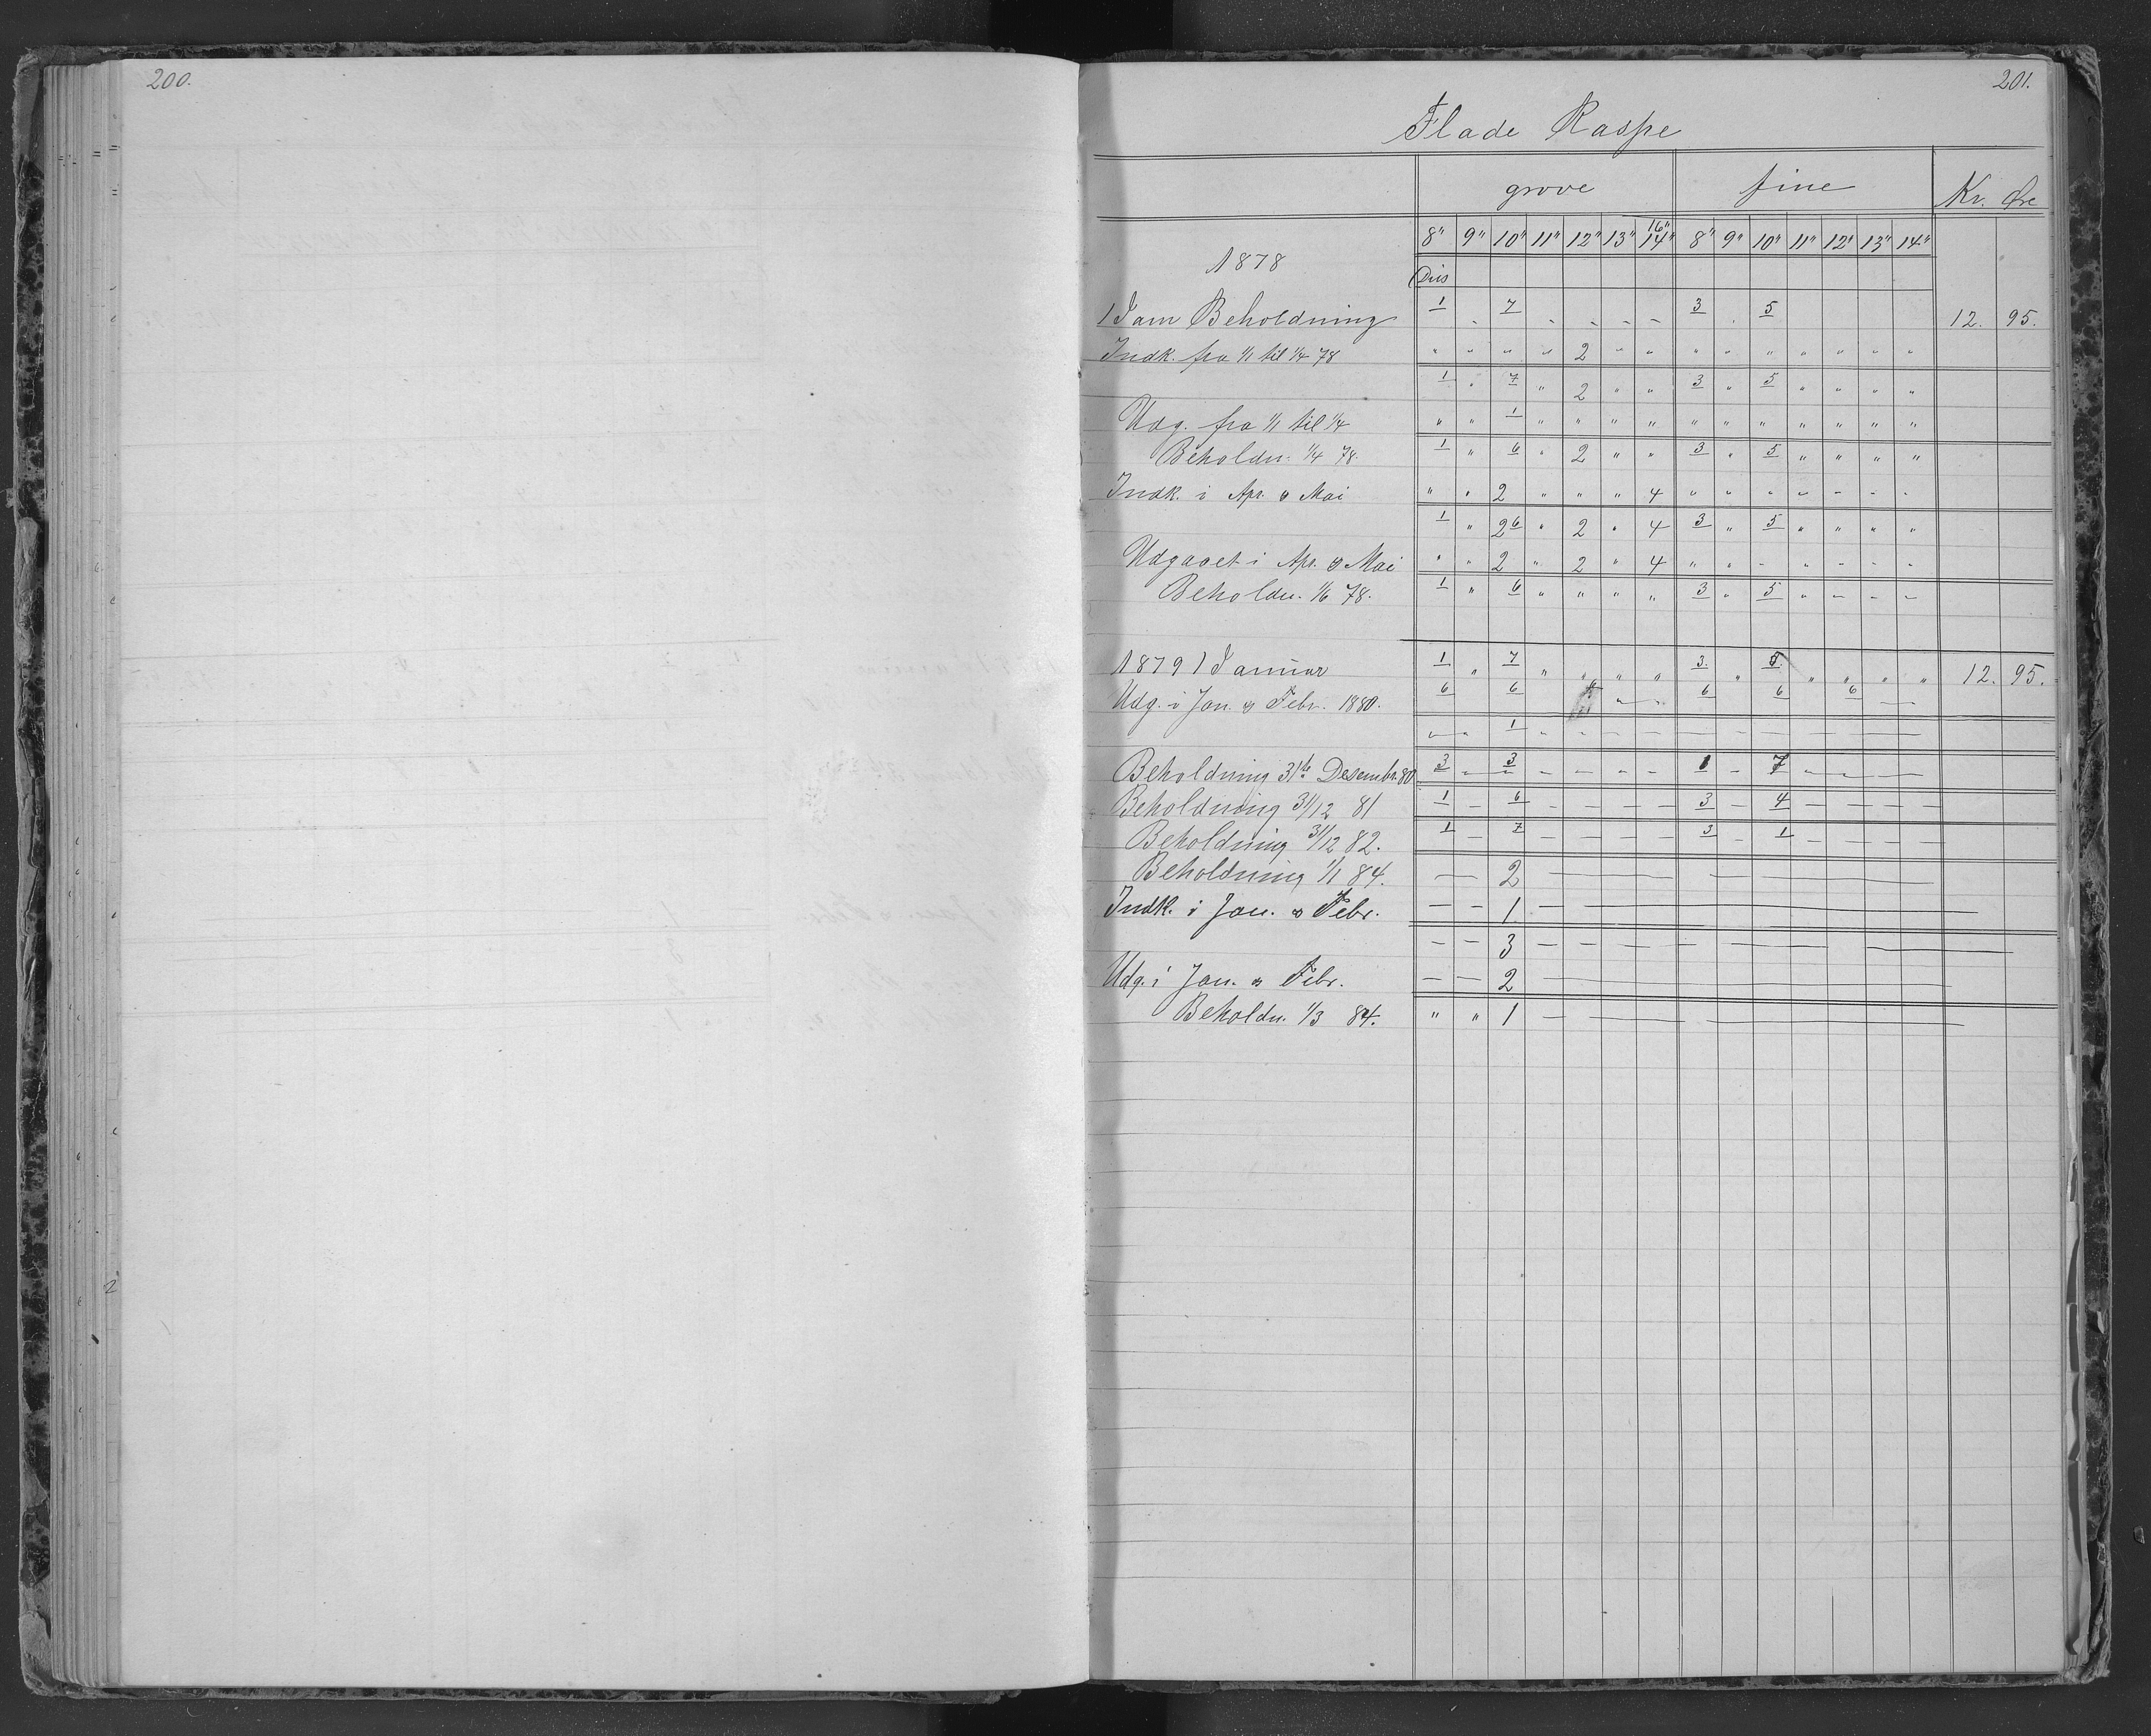 200.
201.
Flade Raspe
grove fine Kr. Øre
16"
8" 9" 10" 11" 12" 13" 14" 8" 9" 10" 11" 12" 13" 14"
1878
Dus
1 Jan Beholdning 1 " 7 " " " " 3 " 5 12. 95.
Indk. fra 1/1 til 1/4 78 " " " " 2 " " " " " " " " "
1 " 7 " 2 " " 3 " 5 " " " "
Udg. fra 1/1 til 1/4 " " 1 " " " " " " " " " " "
Beholdn. 1/4 78. 1 " 6 " 2 " " 3 " 5 " " " "
Indk. i Apr. & Mai " " 2 " " " 4 " " " " " " "
1 " 2 6 " 2 " 4 3 " 5 " " " "
Udgaaet i Apr. & Mai " " 2 " 2 " 4 " " " " " " "
Beholdn. 1/6 78. 1 " 6 " " " " 3 " 5 " " " "
1879 1 Januar 1 " 7 " " " " 3. " 5 " " " " 12. 95.
Udg. i Jan. & Febr. 1880. 6 6 " " 6 6 6 —
" " 1 " — — — — — — — — — —
Beholdning 31te Desembr. 80 3 — 3 — — — — 1 — 7 — — —
Beholdning 31/12 81 1 — 6 — — — — 3 — 4 — — — —
Beholdning 31/12 82. 1 — 7 — — — — 3 — 1 — — — —
Beholdning 1/1 84. — 2 — — — —
Indk. i Jan. & Febr. — — 1 — —
— — 3 — — — — — — — —
Udg. i Jan. & Febr. — — 2 —
Beholdn. 1/3 84. " " 1 — — —